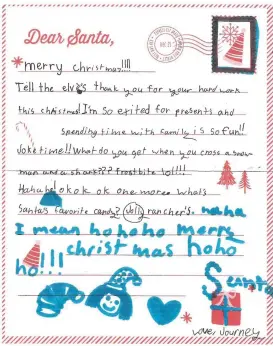 Dear Santa,
merry christmas!!!!
Tell the elves thank you for your hard work
this christmas! I'm so exited for presents and
spending time with family is so fun!!
Joke time!! What do you get when you cross a snow
man and a shark??? frostbite lol!!!!
Hahaha! ok ok ok one more whos
Santa's favorite candy? Jolly rancher's. haha
I mean hohoho merry
christmas hoho
ho!!!
Santa
Love, Journey